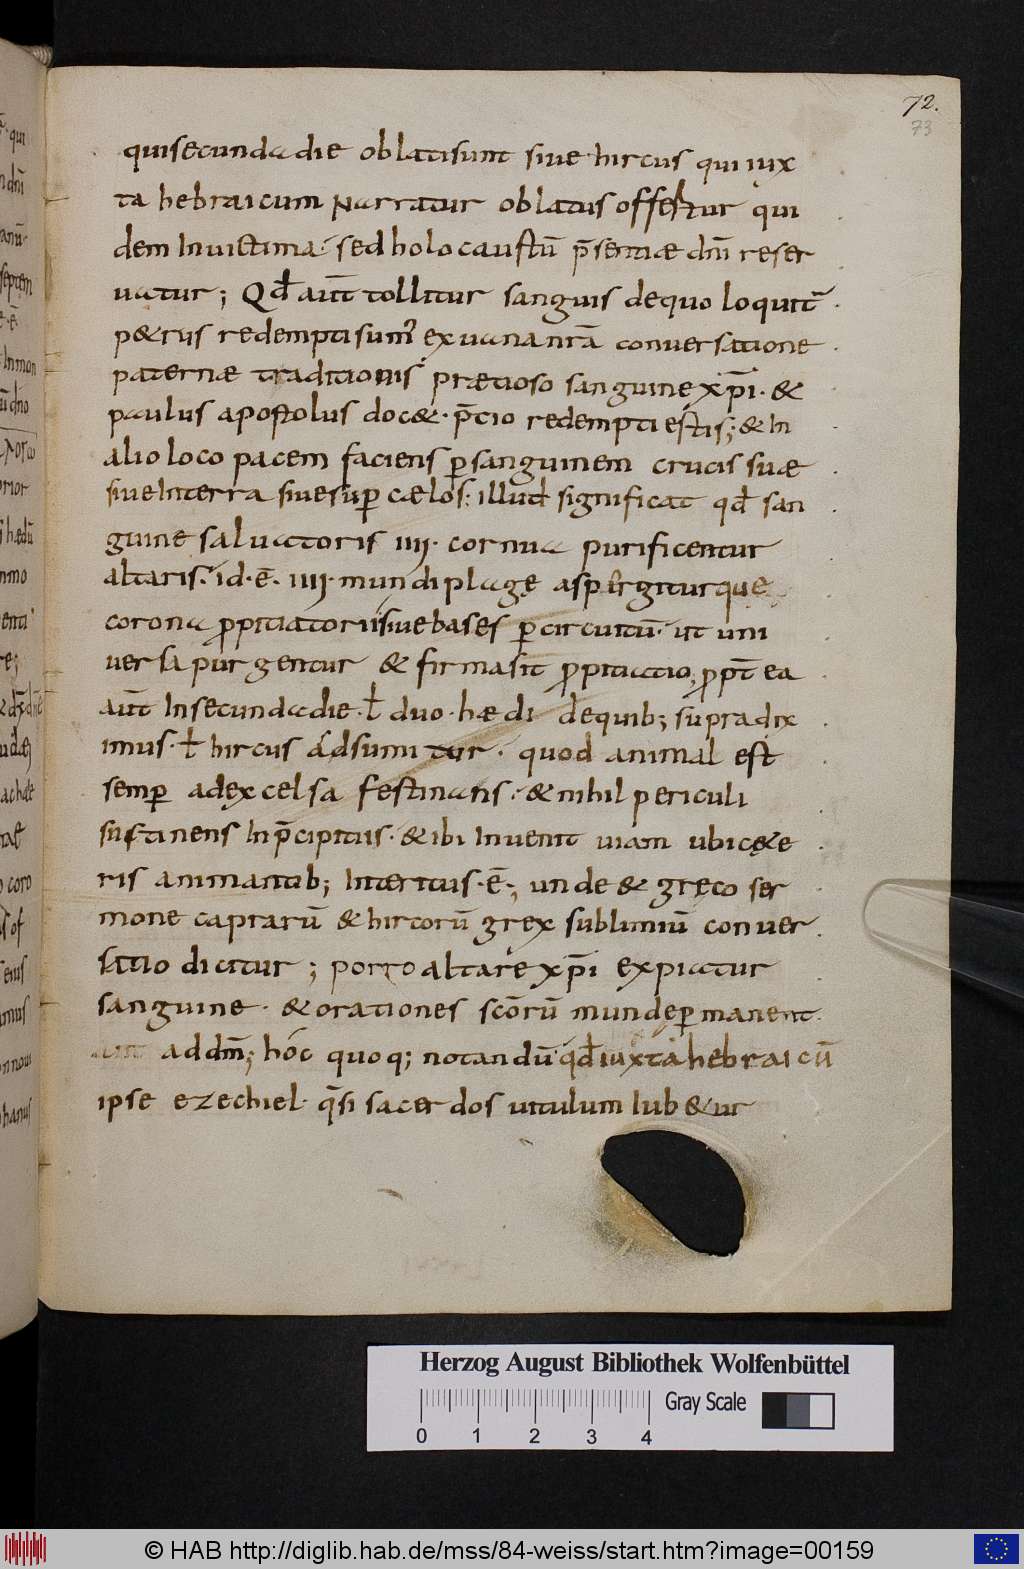 72.
73
qui secunda die oblati sunt siue hircus qui iux
ta hebraicum narratur oblatus offertur qui
dem in uictima· sed holocaustū p̄sentiae dn̄i reser
uatur; Qđ aūt tollitur sanguis de quo loquit̄
p&rus redempti sumꝰ ex uana nr̄a conuersatione
paternae traditionis praetioso sanguine xp̄i· &
paulus apostolus doc&· p̄cio redempti estis; & in
alio loco pacem faciens ꝑ sanguinem crucis suae
siue in terra siue suꝑ caelos: illud significat qđ san
guine saluatoris IIII· cornua purificentur
altaris· id·ē· IIII· mundi plagę aspergitur que
corona ꝓpitiatorii siue bases ꝑ circuitū· ut uni
uersa purgentur & firma sit ꝓpitiatio, ꝓpt̄ ea
aūt in secunda die· ł duo haedi de quib; supra dix
imus· ł hircus adsumitur· quod animal est
semꝑ ad excelsa festinans· & nihil periculi
sustinens in p̄cipitiis· & ibi inuenit uiam ubi cę&e
ris animantib; interitus·ē·; unde & gręco ser
mone caprarū & hircorū grex sublimiū conuer
satio dicitur; porro altare xp̄i expiatur
sanguine· & orationes sc̄orū mundę ꝑmanent
ad dm̄; hóc quoq; notandū qđ iuxta hebraicū
ipse ezechiel· q̄si sacerdos uitulum iub&ur
Herzog August Bibliothek Wolfenbüttel
Gray Scale
0 1 2 3 4
© HAB http://diglib.hab.de/mss/84-weiss/start.htm?image=00159